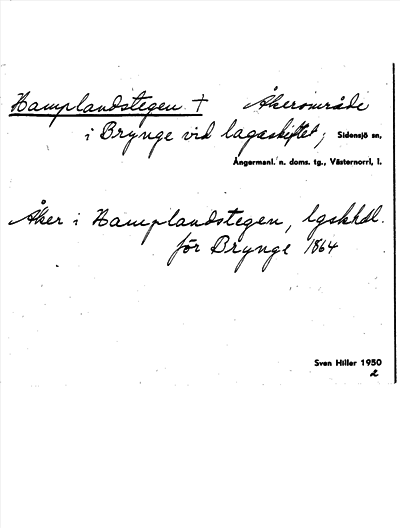 Hamplandstegen † Åkerområde
i Brynge vid lagaskiftet; Sidensjö sn,
Ångermanl. n. doms. tg., Västernorrl. l.
Åker i Hamplandstegen, lgskhdl.
för Brynge 1864
Sven Hiller 1950